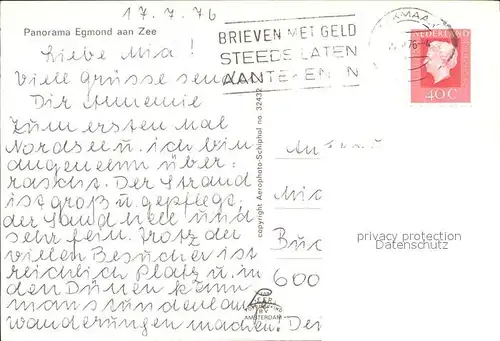 17.7.76
Panorama Egmond aan Zee
BRIEVEN MET GELD
STEEDS LATEN
AANTEKENEN
NEDERLAND
40 C
Liebe Mia!
Viele Grüsse sendet
Dir Annemie
Zum ersten Mal
Nordsee u. ich bin
angenehm über-
rascht. Der Strand
ist groß u. gepflegt,
der Sand hell und
sehr fein. Trotz der
vielen Besucher ist
reichlich Platz u. in
den Dünen kann
man stundenlang
wanderungen machen! Dei
copyright Aerophoto-Schiphol no 32432
600
privacy protection
Datenschutz
AMSTERDAM